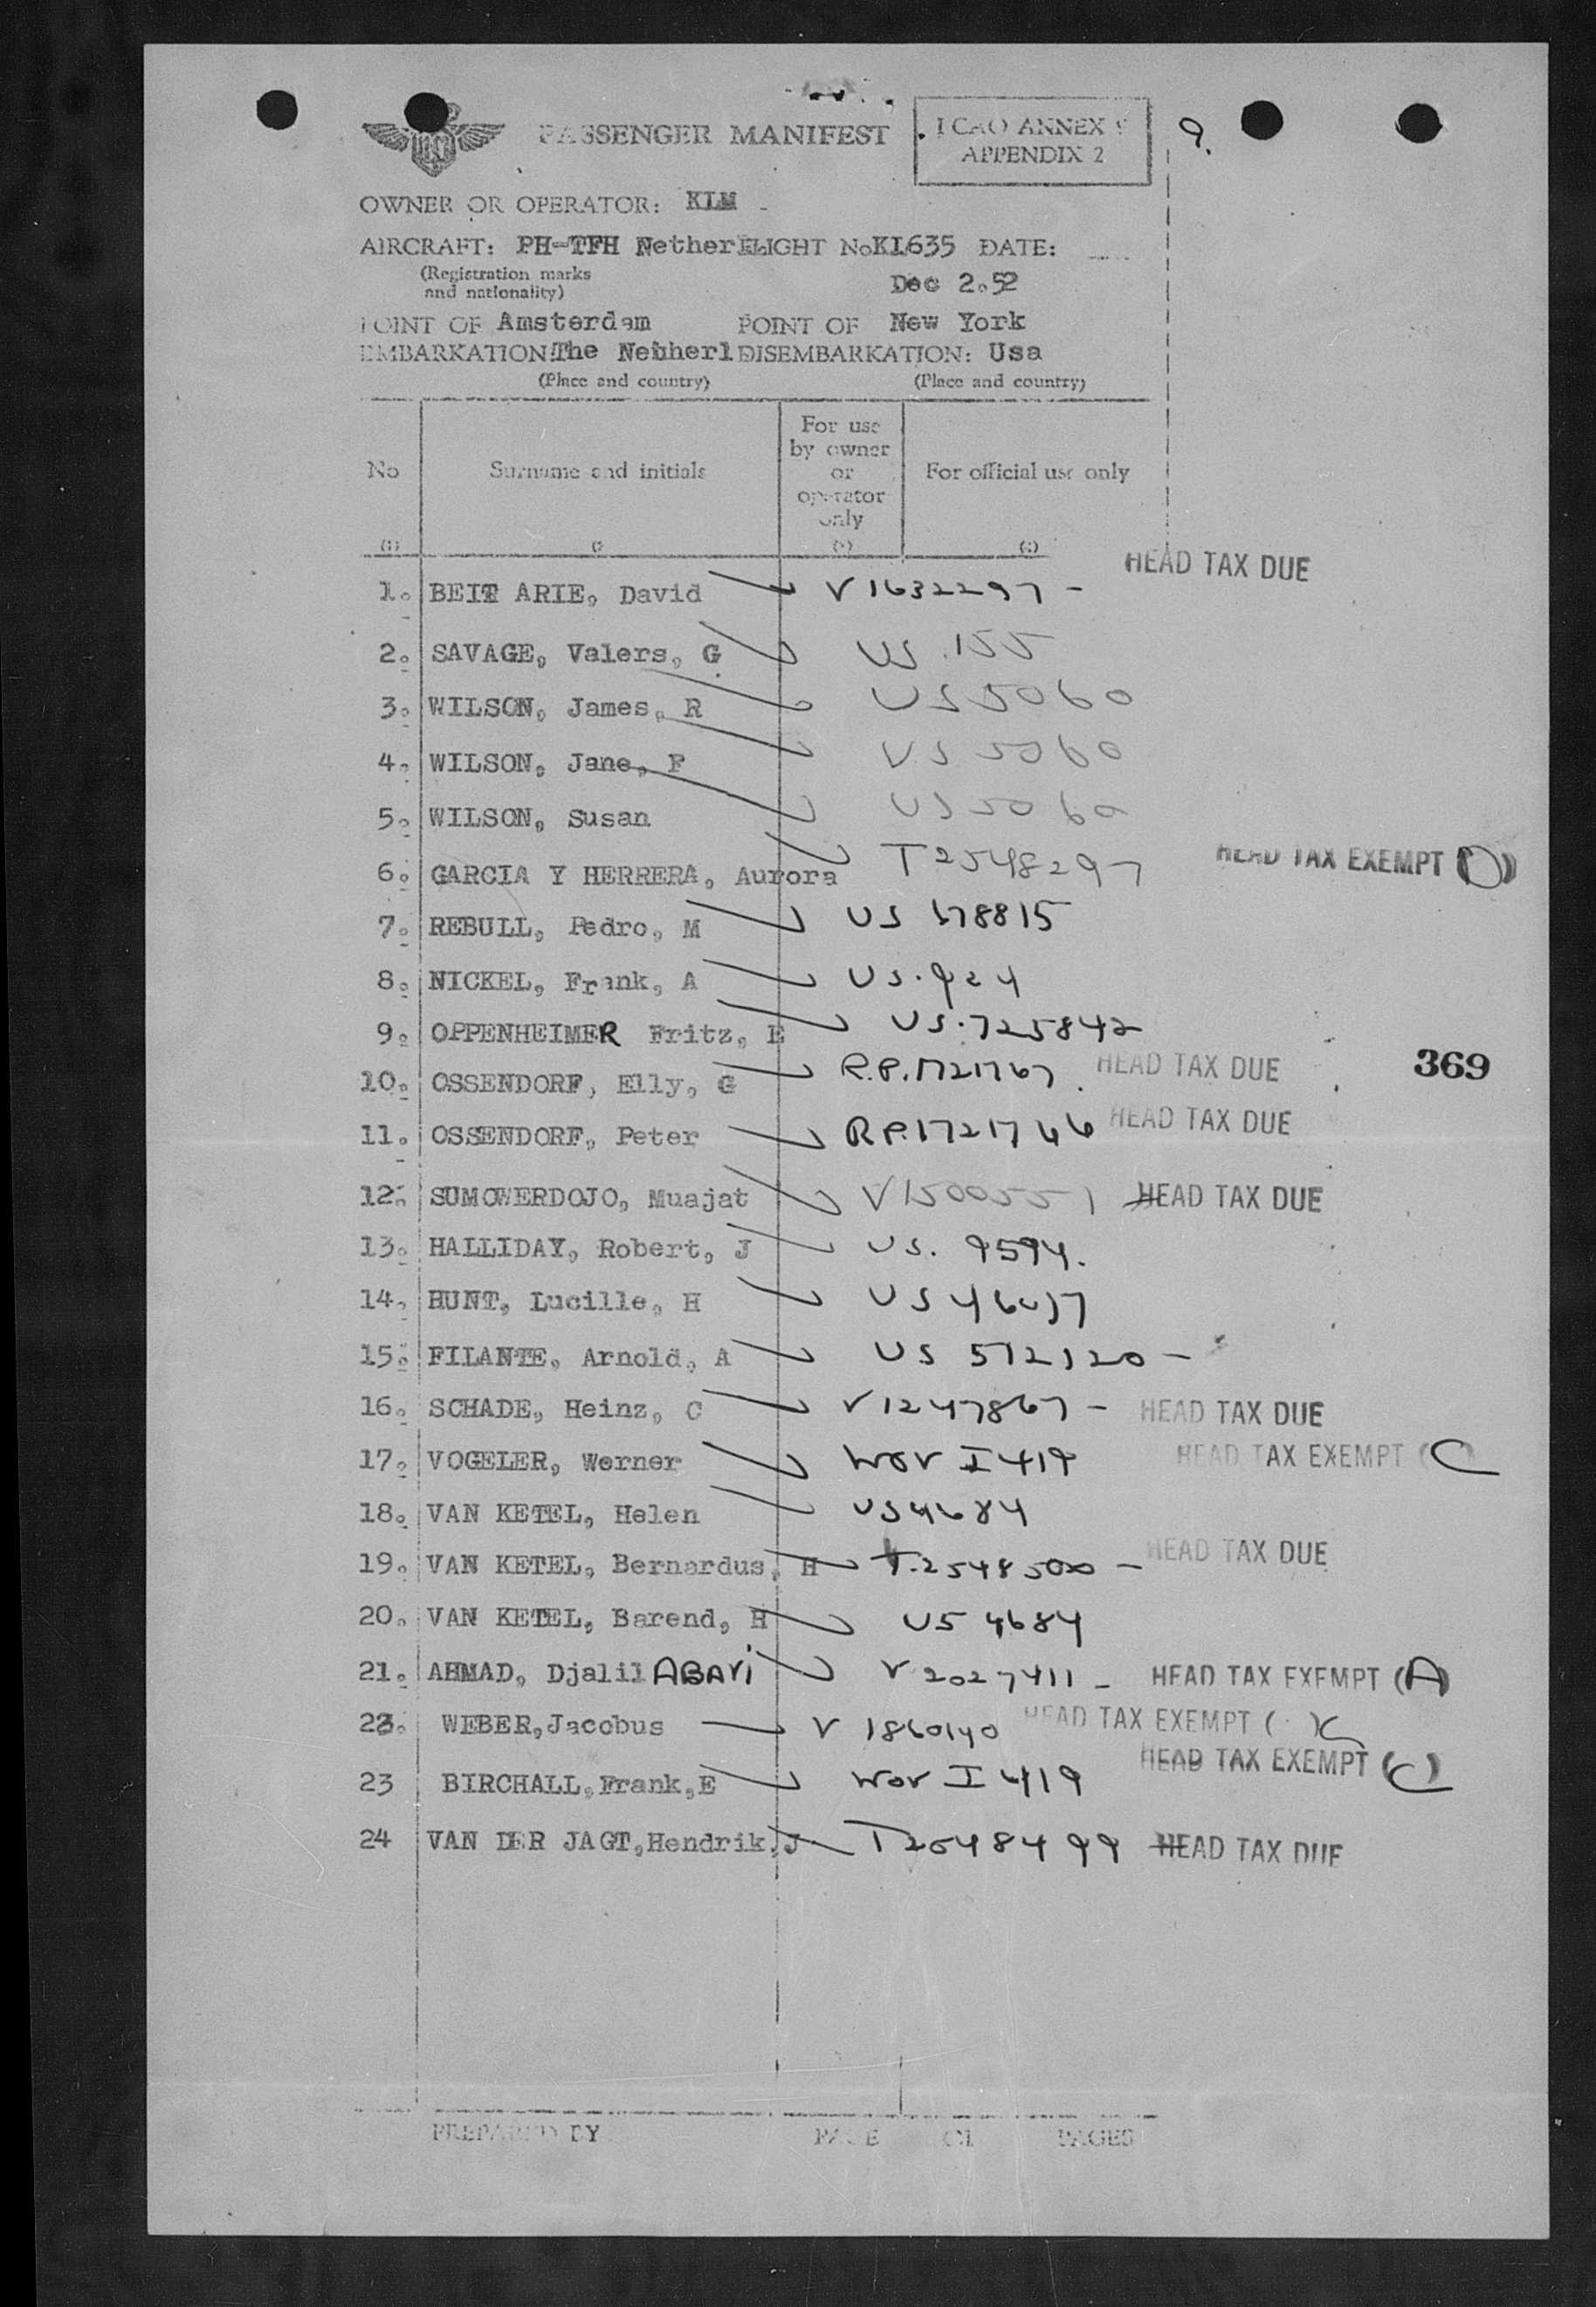 PASSENGER MANIFEST
I CAO ANNEX 9
APPENDIX 2
9.
OWNER OR OPERATOR: KLM
AIRCRAFT: PH-TFH Netherl FLIGHT No KL635 DATE:
(Registration marks
and nationality)
Dec 2.52
POINT OF Amsterdam POINT OF New York
EMBARKATION: The Netherl DISEMBARKATION: Usa
(Place and country) (Place and country)
No Surname and initials For use by owner or operator only For official use only
HEAD TAX DUE
1. BEIT ARIE, David V 1632297 -
2. SAVAGE, Valers, G US.155
3. WILSON, James, R US5060
4. WILSON, Jane, F US5060
5. WILSON, Susan US5060
6. GARCIA Y HERRERA, Aurora T2548297 HEAD TAX EXEMPT (D)
7. REBULL, Pedro, M US 678815
8. NICKEL, Frank, A US.924
9. OPPENHEIMER Fritz, E US.725842
10. OSSENDORF, Elly, G R.P.1721767 HEAD TAX DUE
369
11. OSSENDORF, Peter R P.1721766 HEAD TAX DUE
12. SUMOWERDOJO, Muajat V1500551 HEAD TAX DUE
13. HALLIDAY, Robert, J US. 9594.
14. HUNT, Lucille, H US
15. FILANTE, Arnold, A US 572120 -
16. SCHADE, Heinz, C V1247867 - HEAD TAX DUE
17. VOGELER, Werner Wov I 419 HEAD TAX EXEMPT (C
18. VAN KETEL, Helen US4684
19. VAN KETEL, Bernardus, H T.2548500 - HEAD TAX DUE
20. VAN KETEL, Barend, H US 4684
21. AHMAD, Djalil ABAVi V 2027411 - HEAD TAX EXEMPT (A)
22. WEBER,Jacobus V 1860140 HEAD TAX EXEMPT ( )C
23 BIRCHALL,Frank,E Wov I 419 HEAD TAX EXEMPT (C)
24 VAN DER JAGT,Hendrik,J T2548499 HEAD TAX DUE
PREPARED BY PAGE OF PAGES